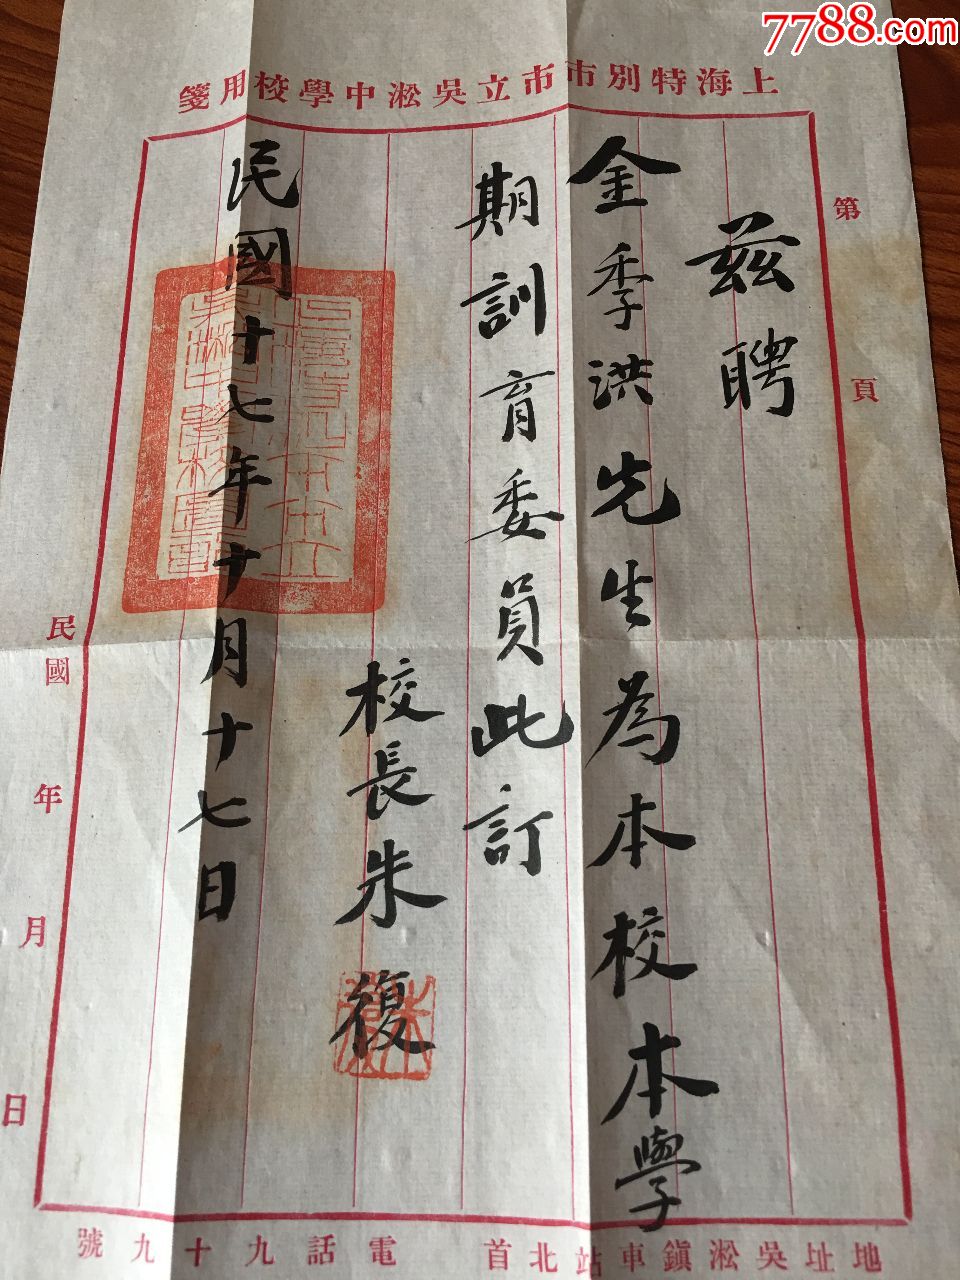 7788.com
上海特別市市立吳淞中學校用箋
第 頁
茲聘
金季洪先生為本校本學
期訓育委員此訂
校長朱復
民國十七年十月十七日
民國 年 月 日
地址吳淞鎮車站北首 電話九十九號